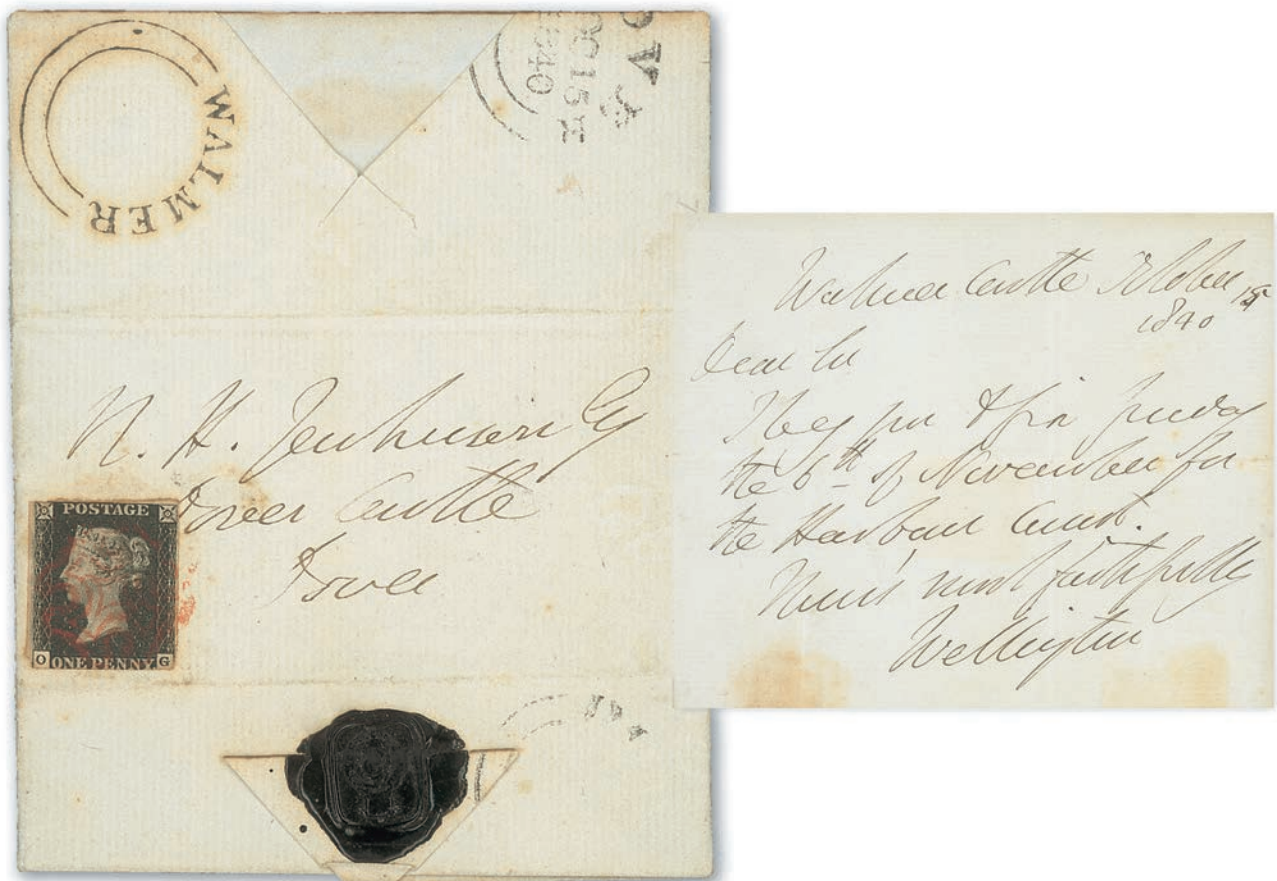 WALMER
OC 15
1840
N. H. Jenkinson Esq
Dover Castle
Dover
POSTAGE
O ONE PENNY G
Walmer Castle October 15
1840
Dear Sir
the 6th of November for
the Harbour Court.
Yours most faithfully
Wellington